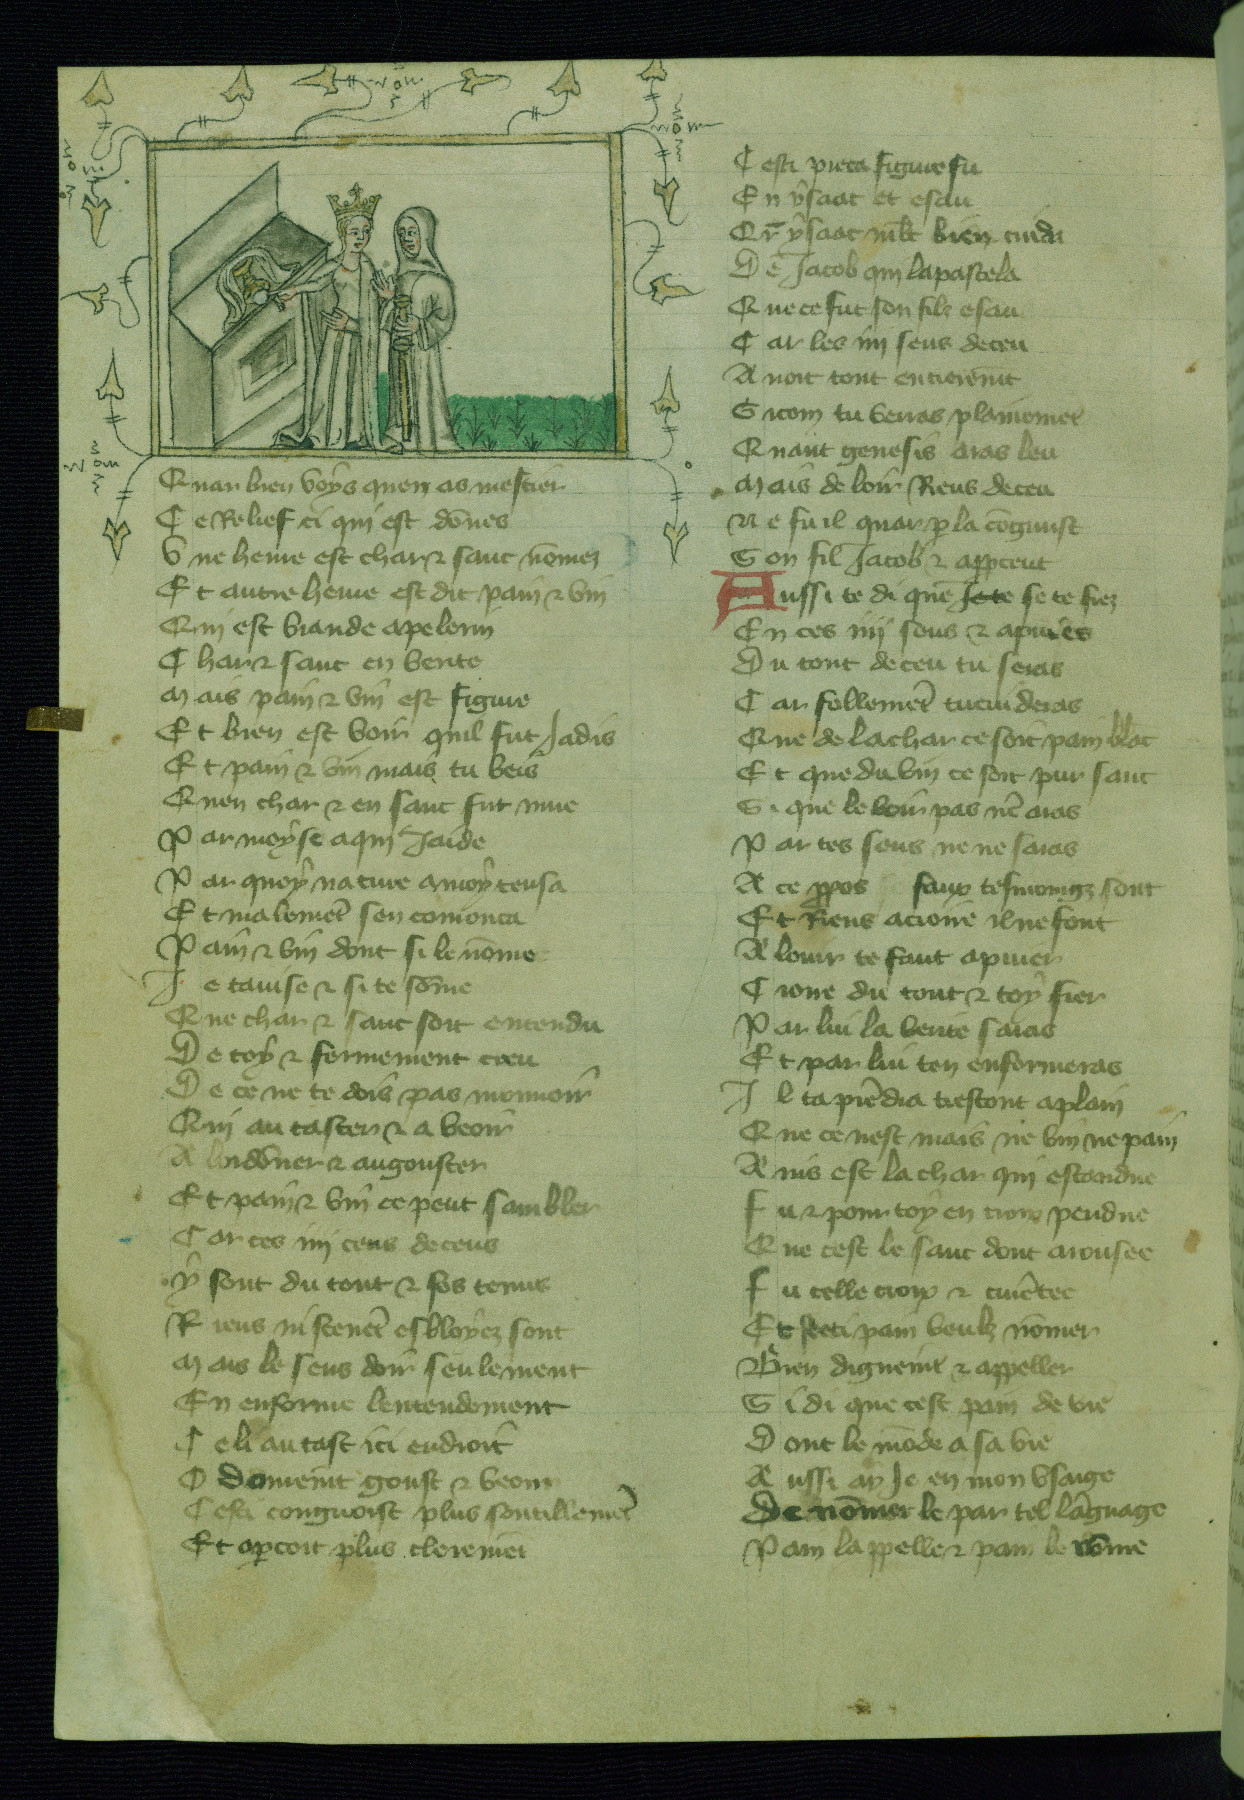 Quar bien voys quen as mestier
Ce Relief ci qui est dones
Vne heure est char & sanc nomez
Et autre heure est dit pain & vin
Qui est viande a pelerin
Char & sanc en verite
Mais pain & vin est figure
Et bien est voir quil fut Jadis
Et pain & vin mais tu veis
Quen char & en sanc fut mue
Par moyse a qui Jaide
Par quoy nature a moy tensa
Et malement sen comonca
Pain & vin dont si le nome
Je tauise & si te some
Que char & sanc soit entendu
De toy & fermement creu
De ce ne te dois pas mouuoir
Qui au taster & a veoir
A lodorer & au gouster
Et pain & vin ce peut sambler
Car ces iiij cens deceus
y sont du tout & fos tenus
Riens ni scenent esbloyez sont
Mais le sens doir seulement
En enforme lentendement
Celi au tast ici endroit
Odorement goust & veoir
Cesti congnoist plus soutillement
Et apcoit plus cleremēt
Cesti pieca figure fu
En ysaac et esau
Qr ysaac mlt bien cuida
De Jacob qui lapastela
Que ce fut son filz esau
Car les iiij sens deceu
A uoit tout entierement
Sicom tu verras plainement
Quant genesis aras leu
Mais de loir Riens deceu
Ne fu il quar p la congnust
Son fil Jacob & appceut
Aussi te di que se te fiez
En ces iiij sens & apuies
Du tout deceu tu seras
Car follemēt tu cuideras
Que de la char ce soit pain blāc
Et que du vin ce soit pur sanc
Si que le voir pas nē aras
Par tes sens ne ne saras
A ce ppos faux tesmoingz sont
Et Riens a croire il ne font
A louir te faut apuier
Croire du tout & toy fier
Par lui la verite saras
Et par lui ten enformeras
Il taprēdra trestout a plain
Que ce nest mais ne vin ne pain
Ains est la char qui estandue
Fu & pour toy en croix pendue
Que cest le sanc dont arousee
Fu celle croix &
Et se ceti pain veulz nōmer
Bien dignemt & appeller
Si di que cest pain de vie
Dont le mōde a sa vie
Aussi ay Je en mon vsaige
De nōmer le par tel lāguage
Pain lappelle & pain le nōme